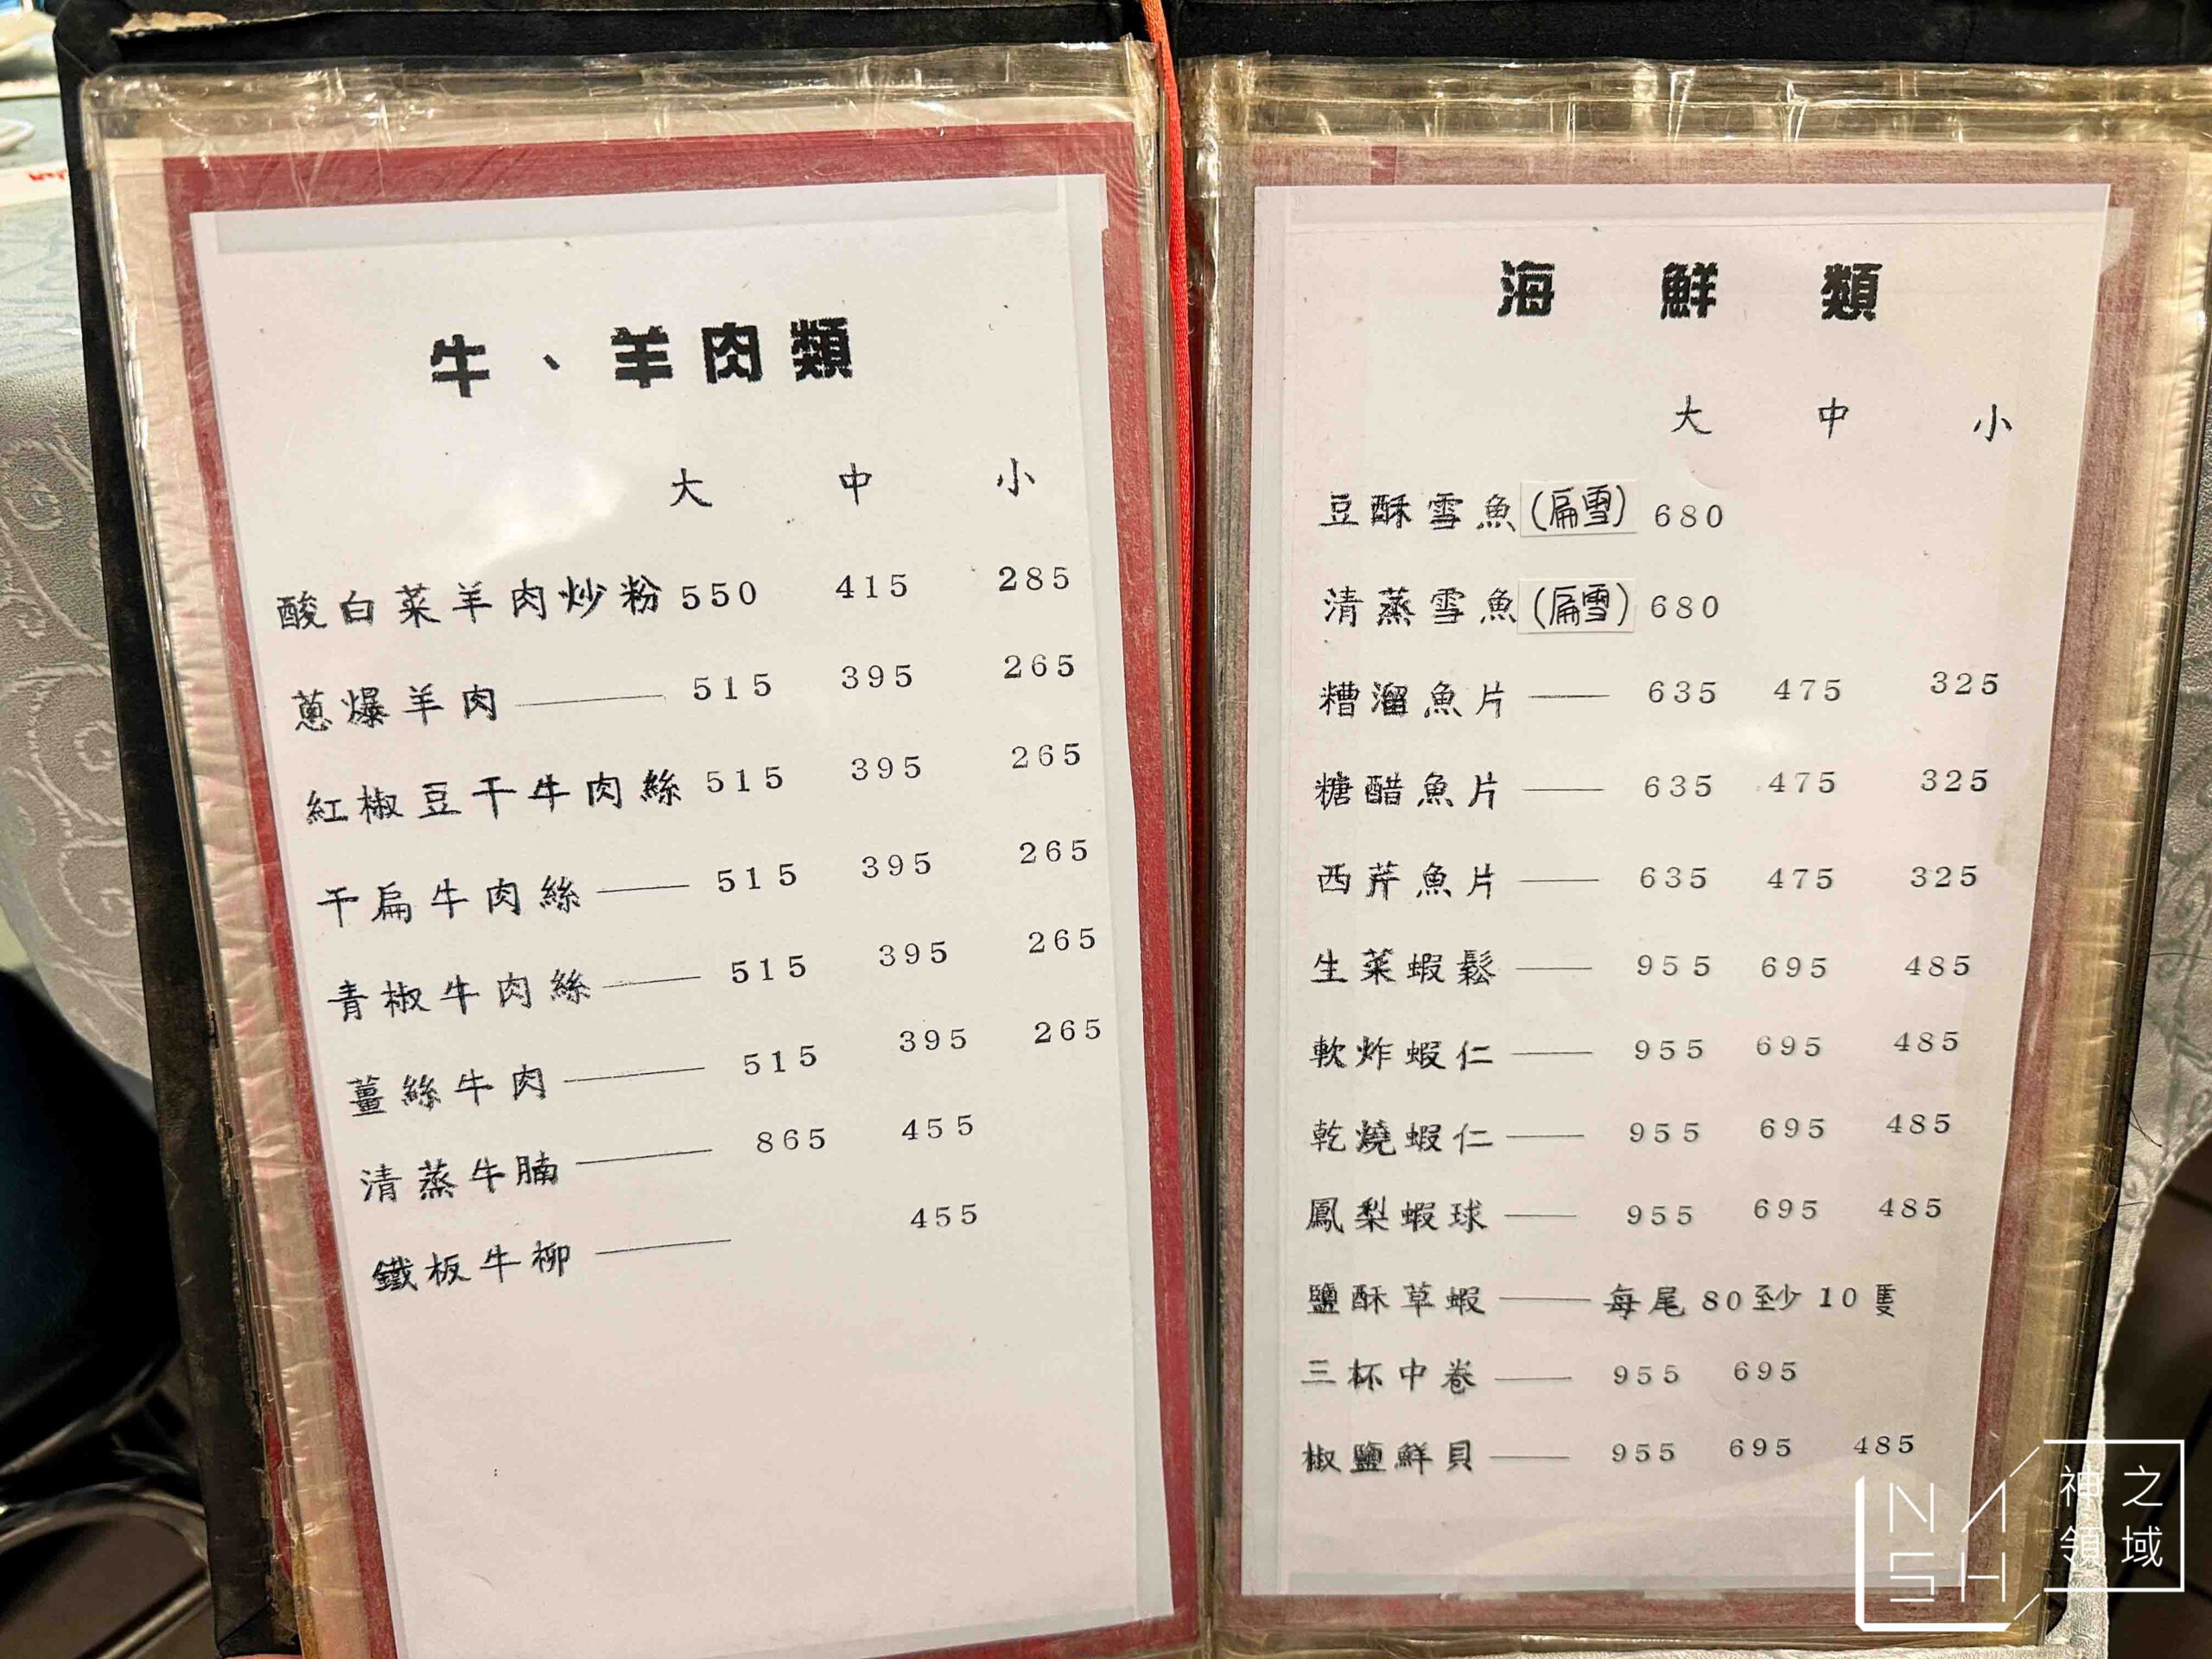 牛、羊肉類
大 中 小
酸白菜羊肉炒粉 550 415 285
蔥爆羊肉 —— 515 395 265
紅椒豆干牛肉絲 515 395 265
干扁牛肉絲 —— 515 395 265
青椒牛肉絲 —— 515 395 265
薑絲牛肉 —— 515 395 265
清蒸牛腩 —— 865 455
鐵板牛柳 —— 455
海鮮類
大 中 小
豆酥雪魚(扁雪) 680
清蒸雪魚(扁雪) 680
糟溜魚片 —— 635 475 325
糖醋魚片 —— 635 475 325
西芹魚片 —— 635 475 325
生菜蝦鬆 —— 955 695 485
軟炸蝦仁 —— 955 695 485
乾燒蝦仁 —— 955 695 485
鳳梨蝦球 —— 955 695 485
鹽酥草蝦 —— 每尾80至少10隻
三杯中卷 —— 955 695
椒鹽鮮貝 —— 955 695 485
NASH
神之
領域